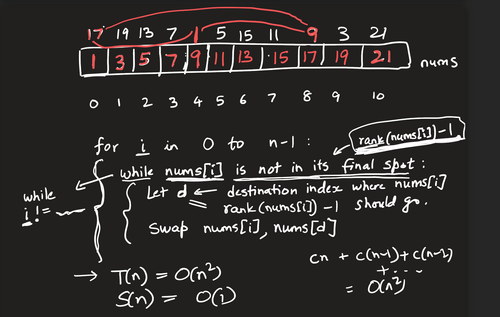 17 19 13 7 1 5 15 11 9 3 21
1 3 5 7 9 11 13 15 17 19 21 nums
0 1 2 3 4 5 6 7 8 9 10
rank(nums[i])-1
for i in 0 to n-1 :
while nums[i] is not in its final spot :
while
i != 
Let d ← destination index where nums[i]
= rank(nums[i])-1 should go.
Swap nums[i], nums[d]
→ T(n) = O(n²)
S(n) = O(1)
cn + c(n-1) + c(n-2)
+ . . .
= O(n²)